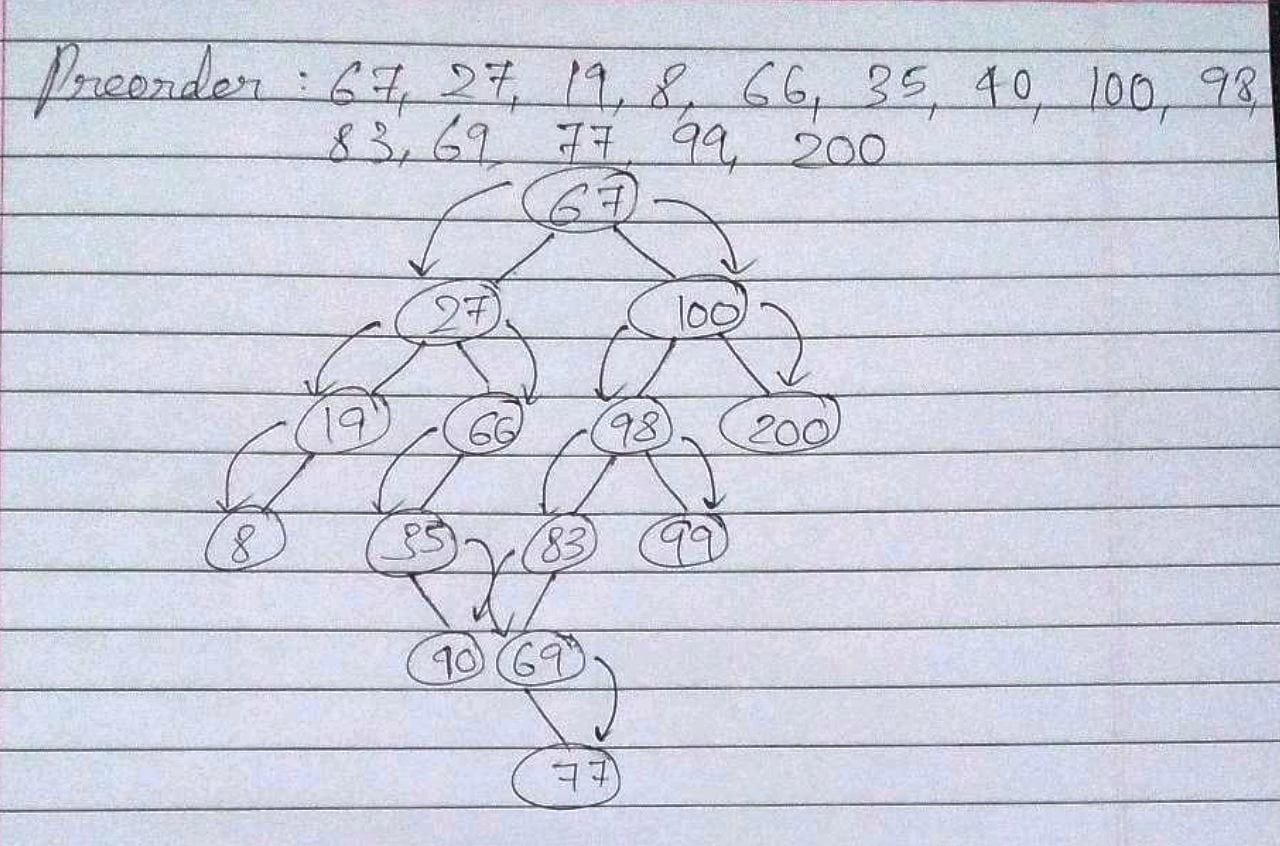 Preorder : 67, 27, 19, 8, 66, 35, 40, 100, 98,
83, 69 77, 99, 200
67
27 100
19 66 98 200
8 35 83 99
40 69
77